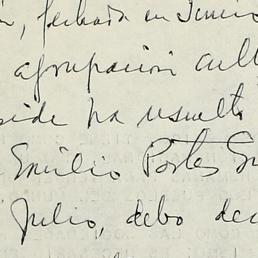 , fechada en Junio
agrupación cult
side ha resuelto
Emilio Portes Gi
Julio, debo dec